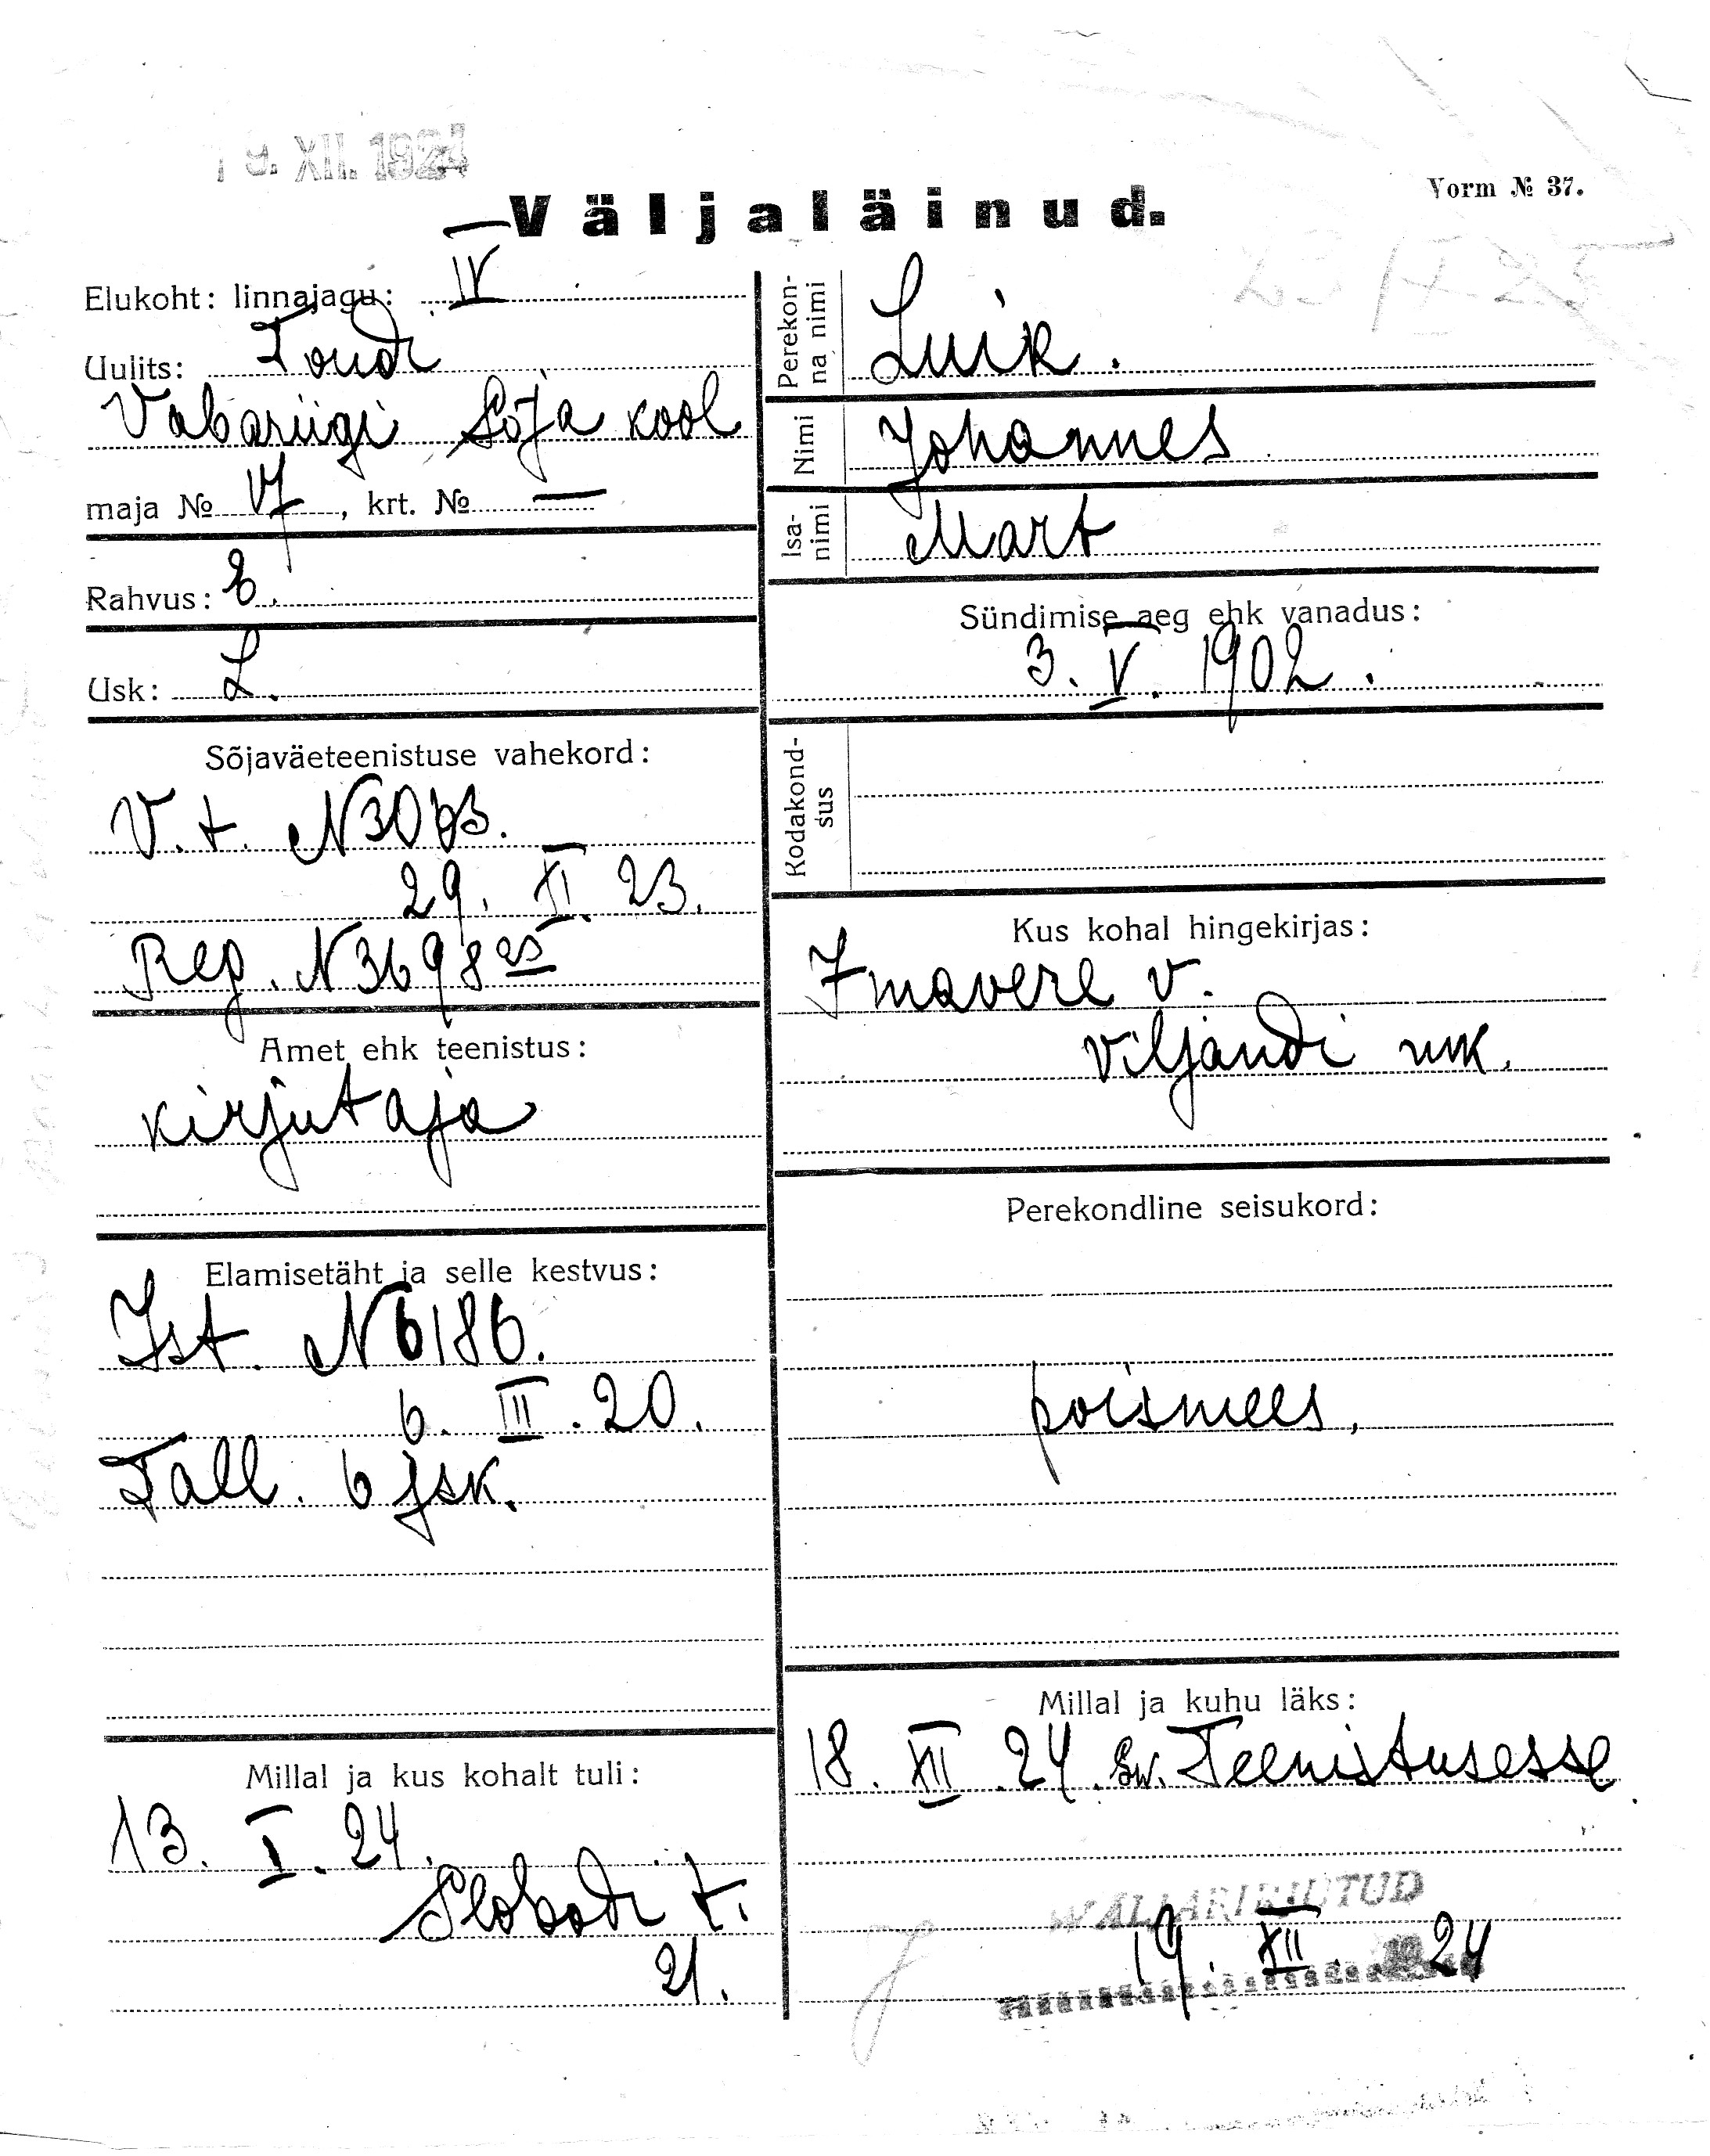 19. XII. 1924
Väljaläinud.
Vorm № 37.
Elukoht: linnajagu: IV
Uulits: Tondi
Vabariigi Sõja kool
maja № 17, krt. № —
Rahvus: E.
Usk: L.
Sõjaväeteenistuse vahekord:
V. t. N
29. XI. 23.
Reg. N 3698
Amet ehk teenistus:
kirjutaja
Elamisetäht ja selle kestvus:
Ist. N 6186.
6. III. 20.
Tall. 6 jsk.
Millal ja kus kohalt tuli:
13. I. 24.
Slobodi t.
21.
Perekonna nimi
Luik.
Nimi
Johannes
Isanimi
Mart
Sündimise aeg ehk vanadus:
3. V. 1902.
Kodakondsus
Kus kohal hingekirjas:
Imavere v.
Viljandi mk.
Perekondline seisukord:
poismees,
Millal ja kuhu läks:
18. XII. 24. Sw. Teenistusesse
WÄLJAKIRJUTUD
19. XII. 24